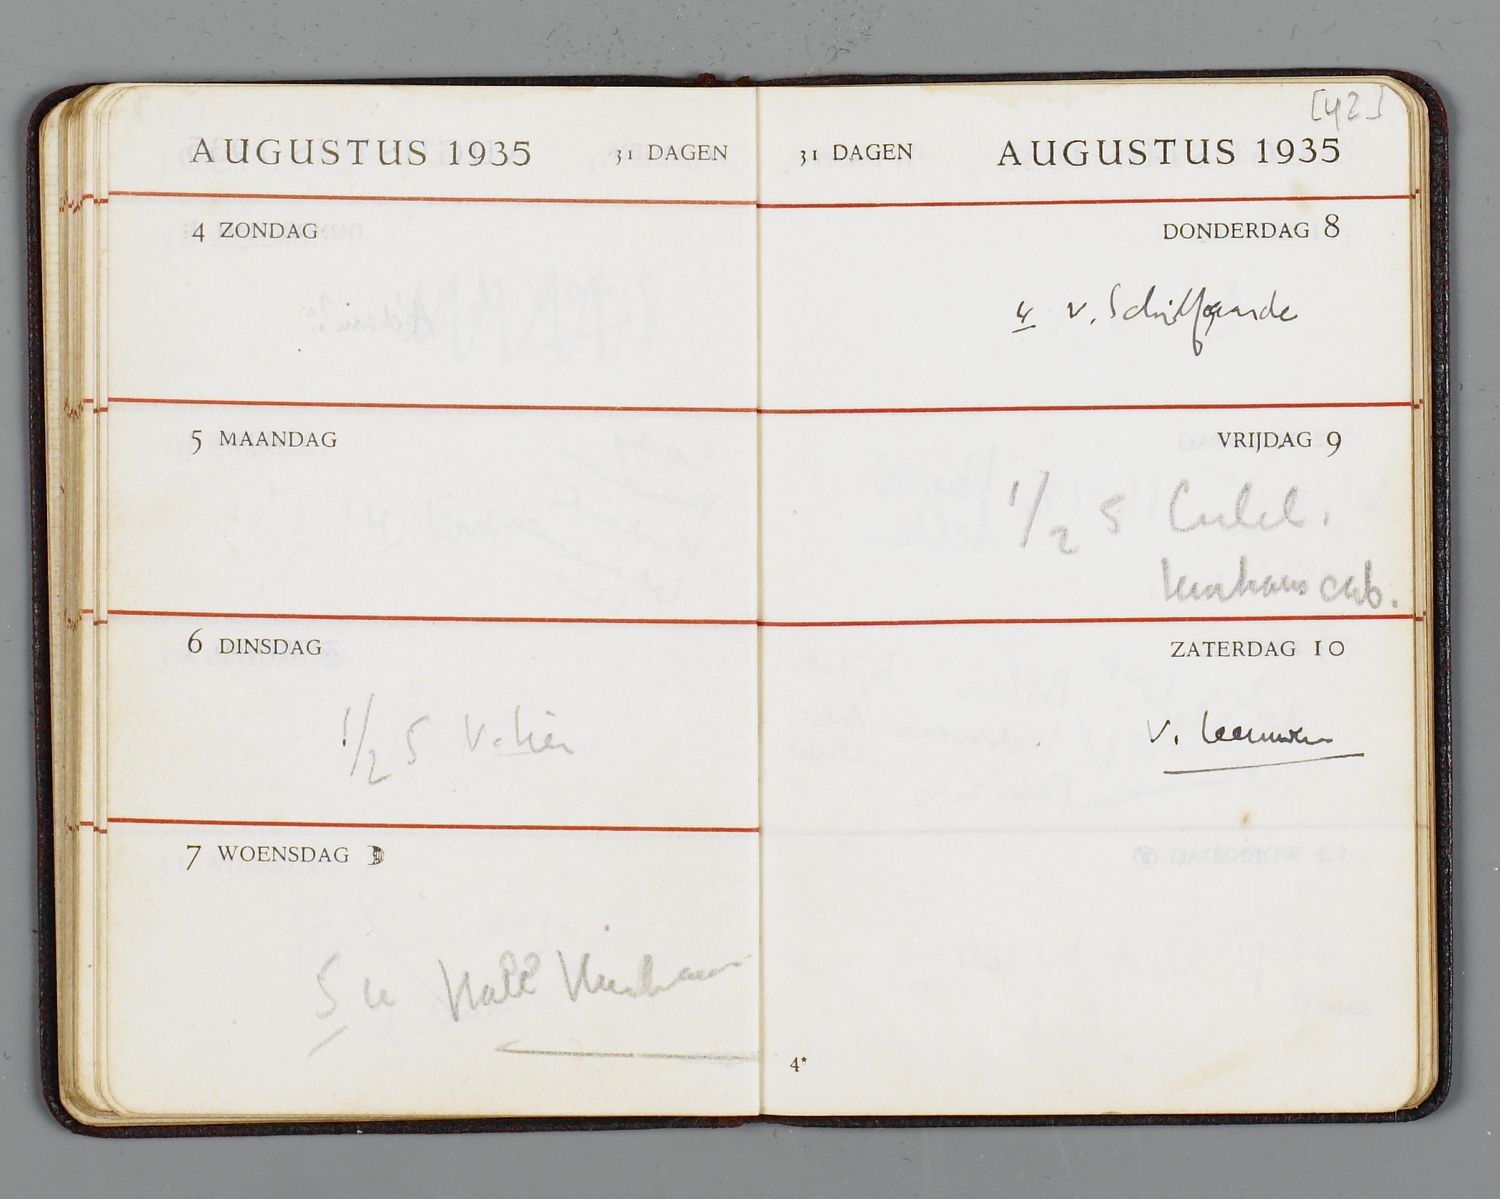 AUGUSTUS 1935 31 DAGEN
4 ZONDAG
5 MAANDAG
6 DINSDAG
1/2 5 V. Lier
7 WOENSDAG
5 u Hall Kurhaus
[42]
31 DAGEN AUGUSTUS 1935
DONDERDAG 8
4 v. Schilfgaarde
VRIJDAG 9
1/2 5
Kurhaus cab.
ZATERDAG 10
v. Leeuwen
4*